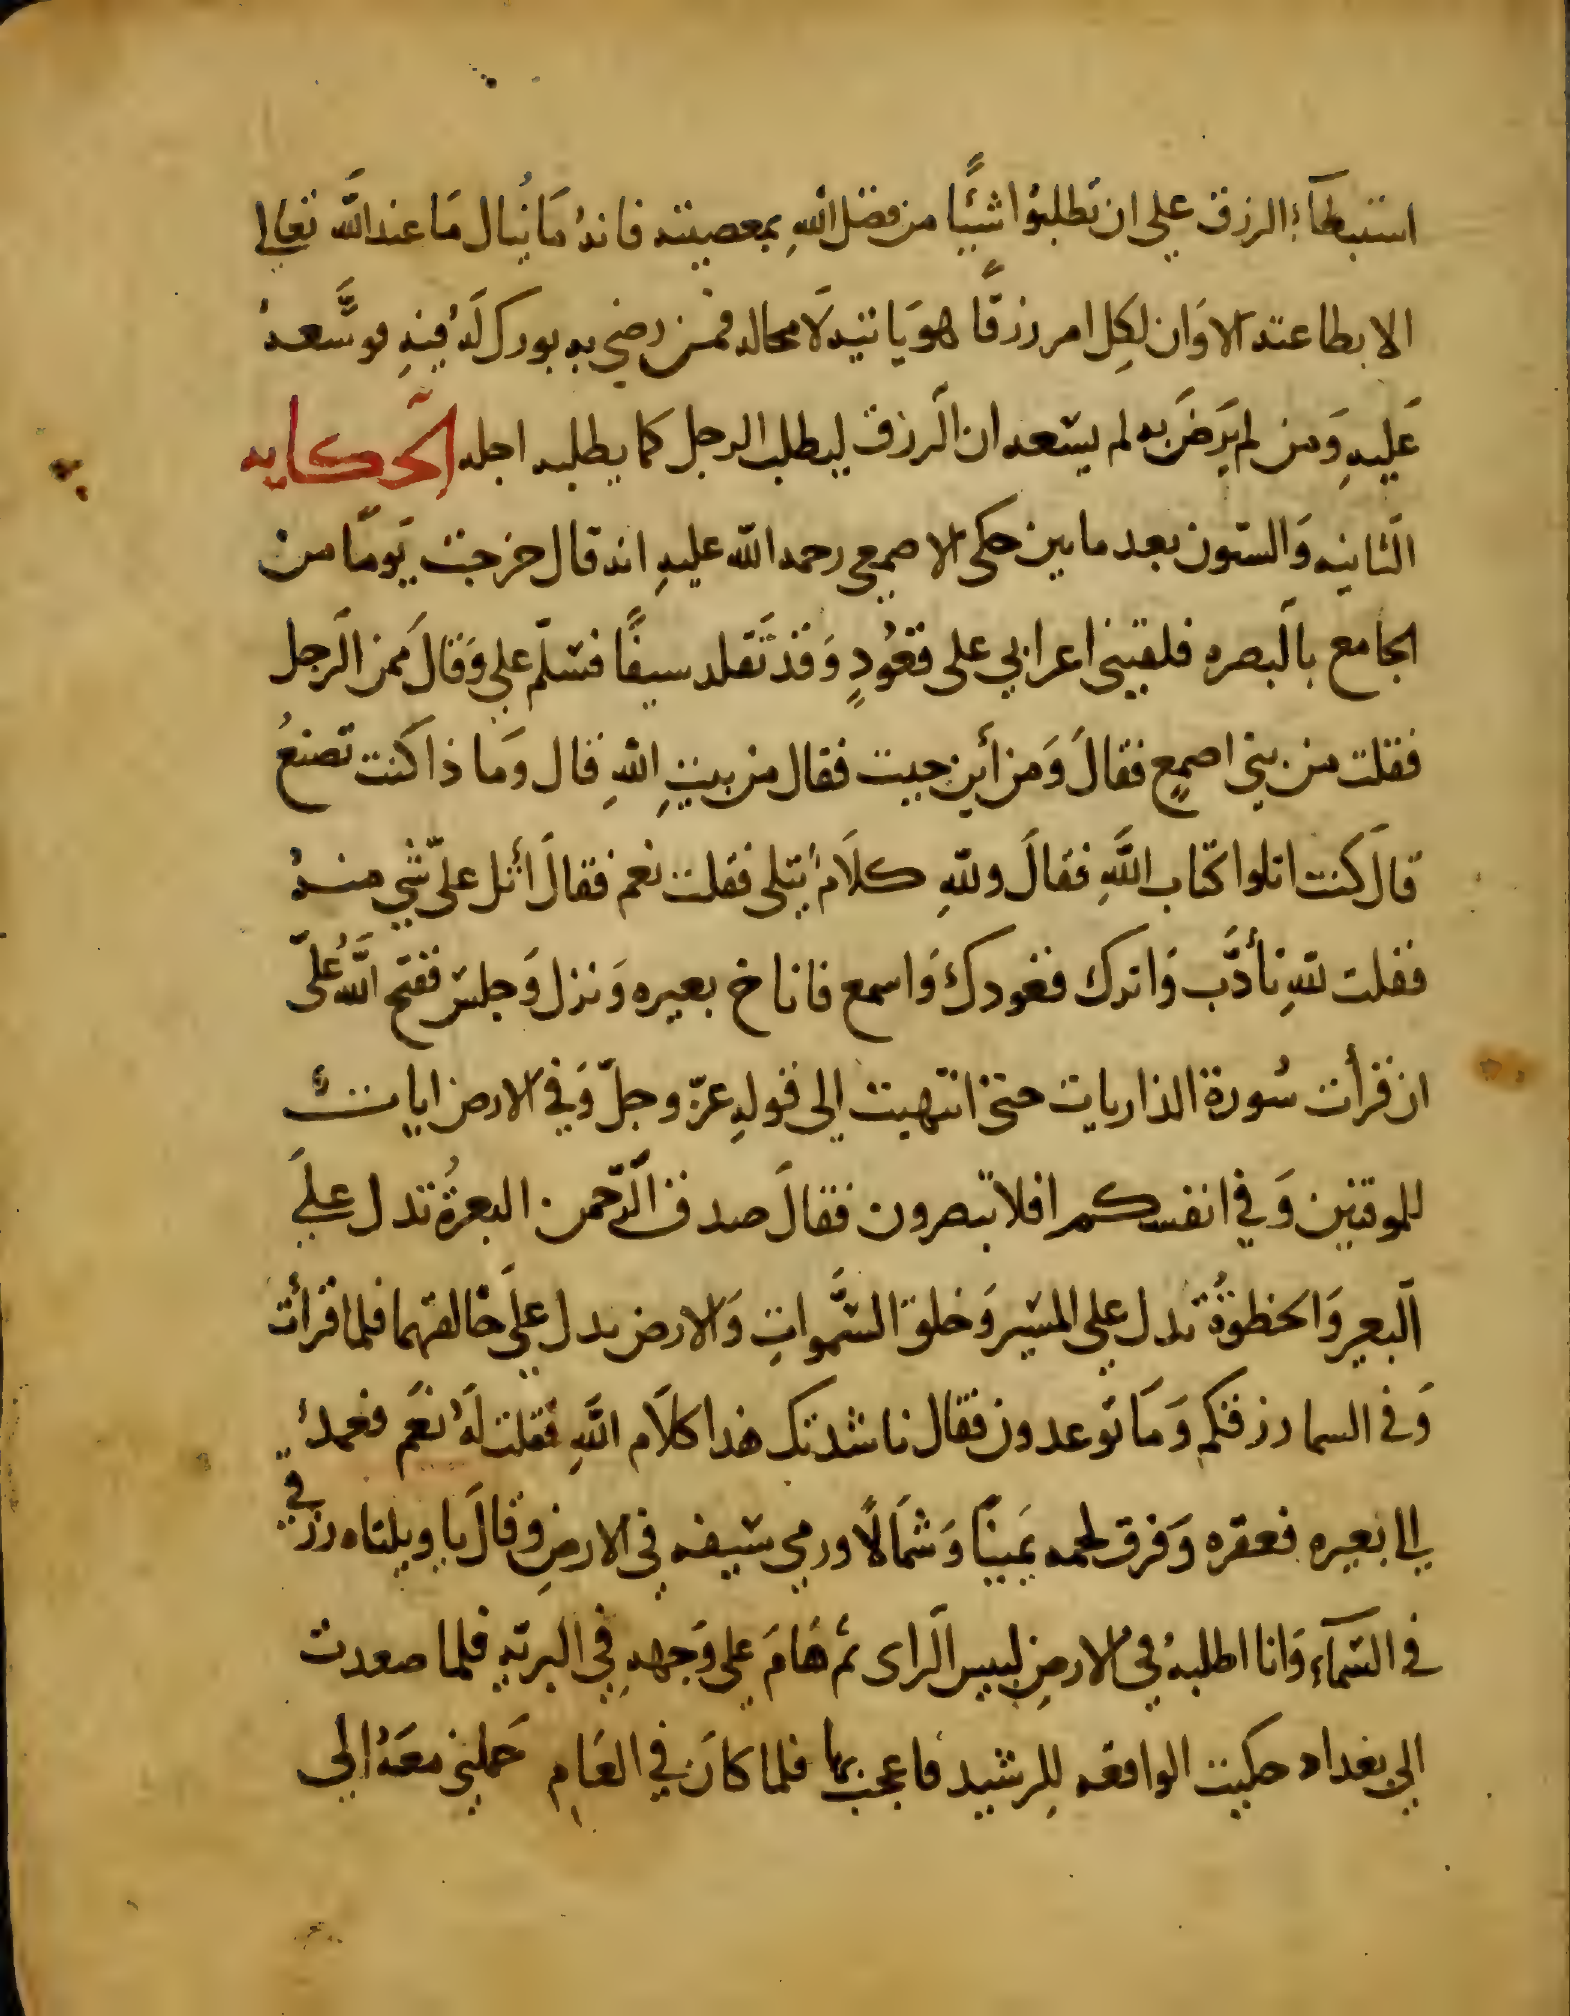 استبطآء الرزق علي ان تطلبوا شيًّا من فضل اللهِ بمعصيته فانه مَا يُنال مَا عند اللَّه تعالي
الا بطاعته الا وَان لكِل امر رزقًا هو يَاتيه لَا محاله فمن رضي به بورك لَهُ فيهِ فوسَّعهُ
عَليهِ وَمن لم يَرِضَ به لم يسعه ان الَرزق ليطلب الرجل كما يطلبه اجله الحَكايه
الَثانيه وَالستون بعد مايين حكي الاصمعي رحمه الله عليهِ انه قال خرجت يَومًا من
الجامع بالَبصره فلقيني اعرابي على قعُودٍ وَقد تَقلد سيفًا فسَلّم علي وَقالَ ممن الَرجل
فقلت من بني اصمعٍ فقالَ وَمن أين جيت فقال من بيتِ اللهِ قال وَما ذا كنت تصنعُ
قالَ كنت اتلوا كتاب اللَّهِ فقالَ وللهِ كلَامُ يُتلى فقلت نعم فقالَ أتل علىّ شي منهُ
فقلت للهِ تأدَّب وَاترك قعودك وَاسمع فاناخ بعيره وَنزل وَجلس ففتح اللَّهُ علىّ
ان قرأت سُورة الذاريات حتى انتهيت إلى قولهِ عزّ وجلّ وَفي الارض اياتٌ
للموقنين وَفي انفسكم افلا تبصرون فقالَ صدق الَرّحمن البعرةُ تدل عليَ
الَبعير وَالخطوةُ تدل علي المسير وَخلق السَّمواتِ وَالارض تدل عليَ خالقهما فلما قرأت
وَفي السما رزقكم وَمَا توعدون فقال ناشدتك هذا كلَام اللَّهِ فقلت لَهُ نعَم فعمدَ
الي بعيره فعقره وَفرق لحمه يَمينًا وَشمَالًا ورمي سيفه في الارضِ وقالَ يا ويلتاه رزقي
في السَمآءِ وَانا اطلبهُ في الارضِ لبيس الَراي ثم هَامَ علي وَجههِ في البرّيه فلما صعدت
الي بغداد حكيت الواقعه لِلرشيد فاعجب بها فلما كانَ في العَامِ حَملني معَهُ إلي